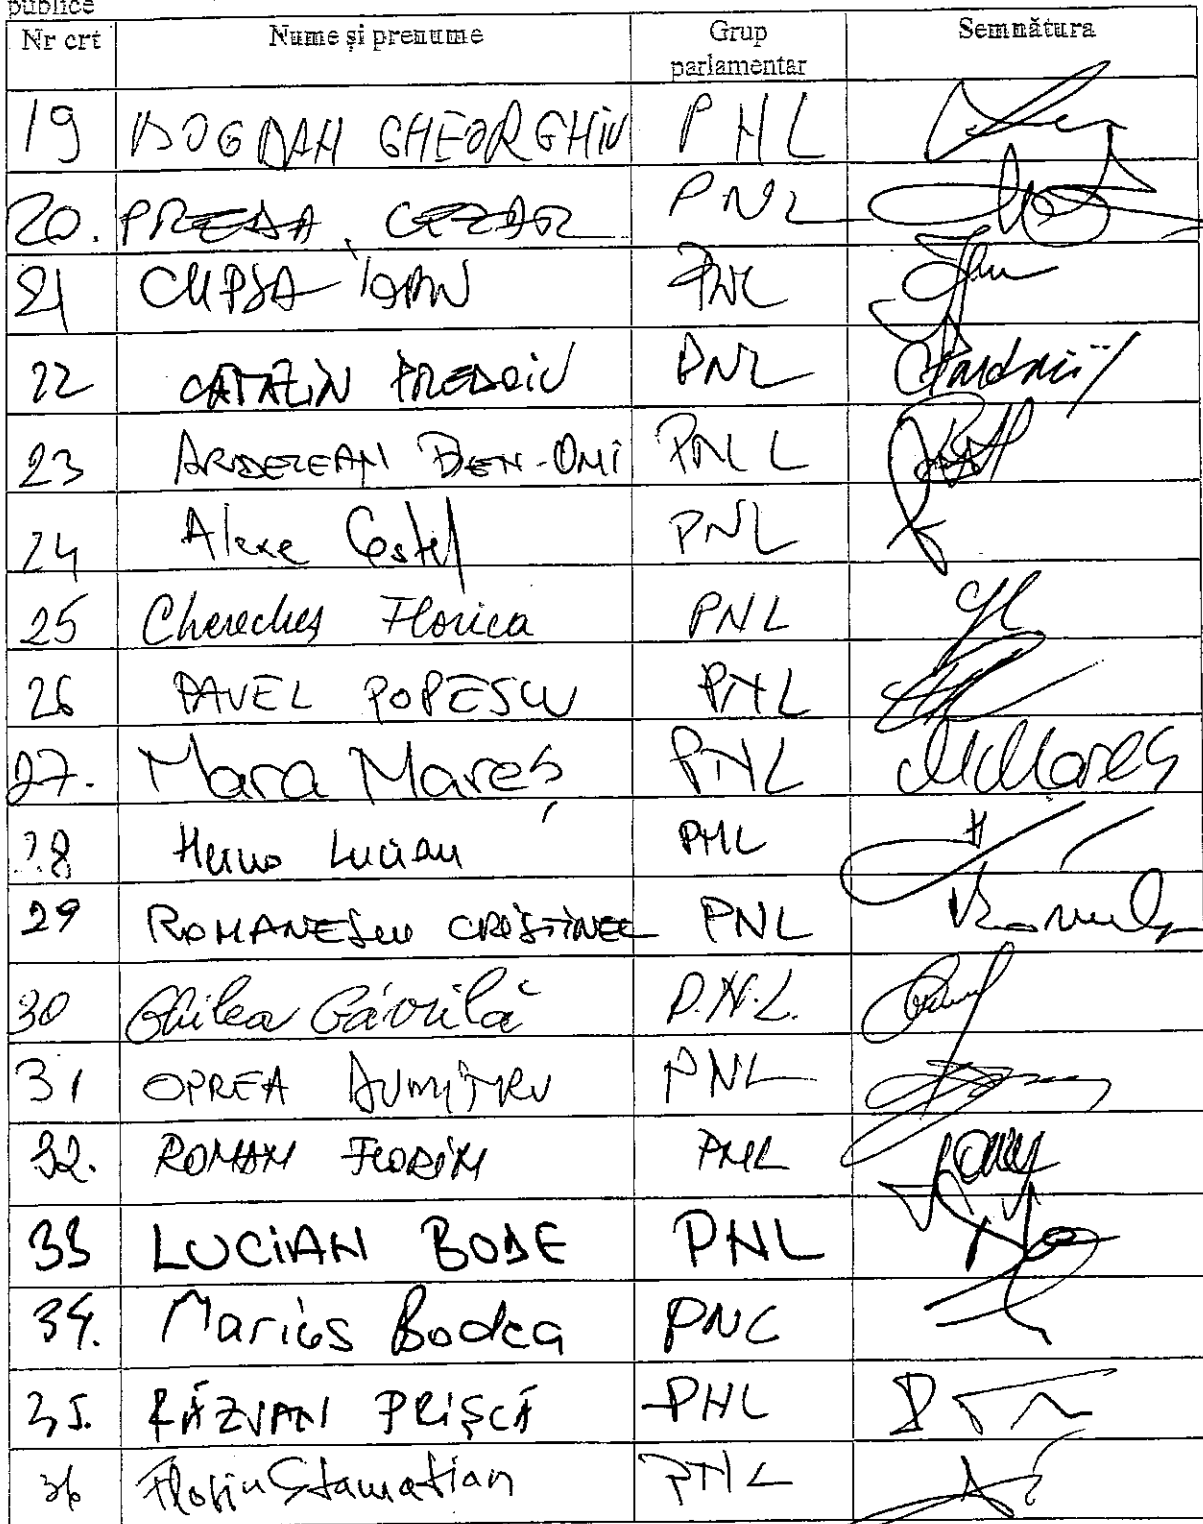 publice
Nr crt Nume și prenume Grup parlamentar Semnătura
19 BOGDAN GHEORGHIU PNL
20. PREDA CEZAR PNL
21 CUPȘA IOAN PNL
22 CATALIN PREDOIU PNL
23 ARDELEAN BEN-ONI PNL
24 Alexe Costel PNL
25 Chereches Florica PNL
26 PAVEL POPESCU PNL
27. Mara Mareș PNL MMareș
28 Heius Lucian PNL
29 ROMANESCU CRISTINEL PNL
30 Ghilea Găvrilă P.N.L.
31 OPREA DUMITRU PNL
32. ROMAN FLORIN PNL
33 LUCIAN BODE PNL
34. Marius Bodea PNL
35. RĂZVAN PRIȘCĂ PNL
36 Florin Stamatian PNL